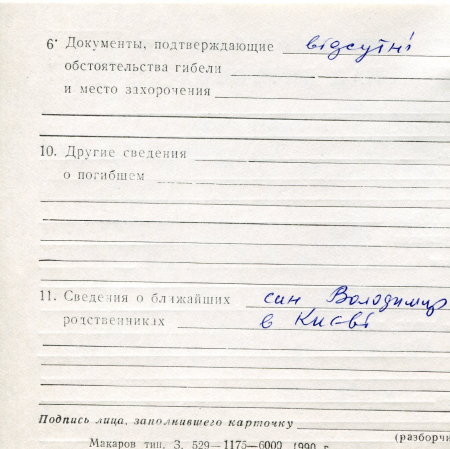 6' Документы, подтверждающие відсутні
обстоятельства гибели
и место захоронения
10. Другие сведения
о погибшем
11. Сведения о ближайших син Володимир
родственниках в Києві
Подпись лица, заполнившего карточку
(разборчи
Макаров тип. З. 529—1175—6000 1990 г.